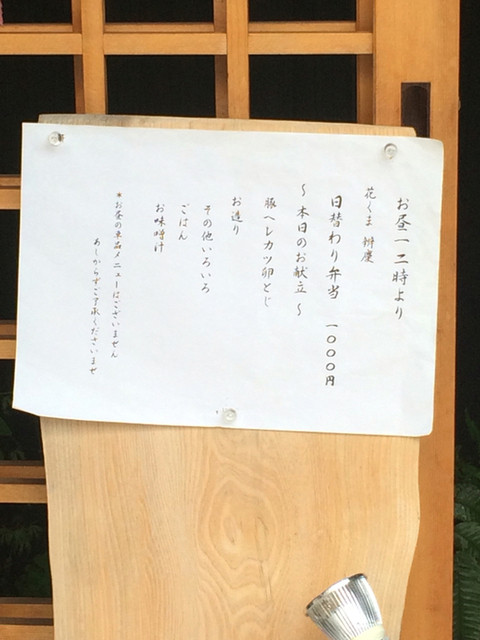 お昼一二時より
花くま 辨慶
日替わり弁当 一〇〇〇円
～本日のお献立～
豚ヘレカツ卵とじ
お造り
その他いろいろ
ごはん
お味噌汁
*お昼の単品メニューはございません
あしからずご了承くださいませ